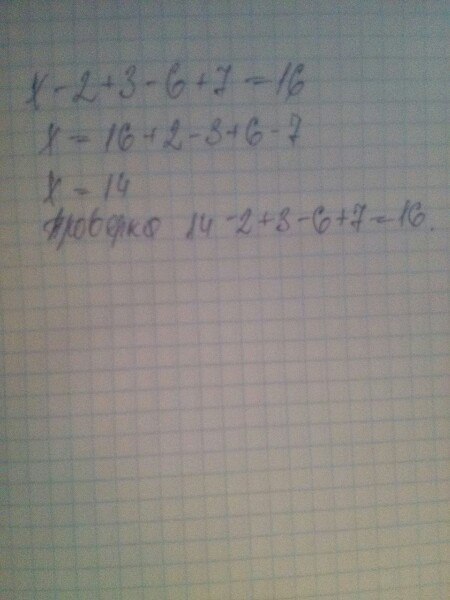 x - 2 + 3 - 6 + 7 = 16
x = 16 + 2 - 3 + 6 - 7
x = 14
проверка 14 - 2 + 3 - 6 + 7 = 16.